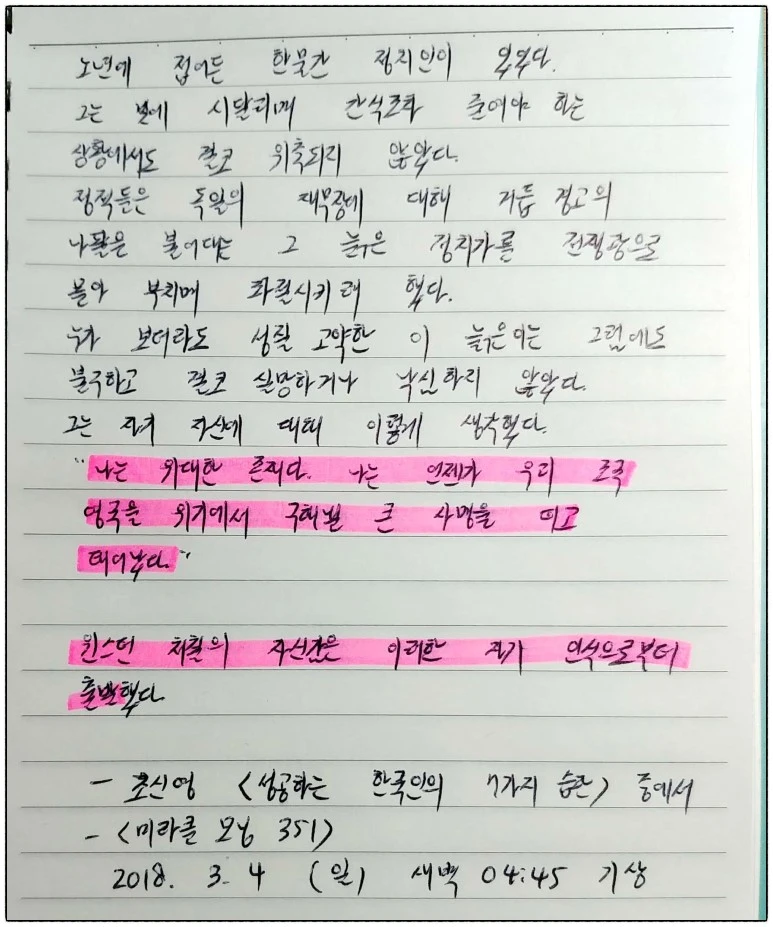 노년에 접어든 한물간 정치인이 있었다.
그는 병에 시달리며 간식조차 줄여야 하는
상황에서도 결코 위축되지 않았다.
정적들은 독일의 재무장에 대해 거듭 경고의
나팔을 불어대는 그 늙은 정치가를 전쟁광으로
몰아 부치며 좌절시키려 했다.
누가 보더라도 성질 고약한 이 늙은이는 그럼에도
불구하고 결코 실망하거나 낙심하지 않았다.
그는 자기 자신에 대해 이렇게 생각했다.
"나는 위대한 존재다. 나는 언젠가 우리 조국
영국을 위기에서 구해낼 큰 사명을 띠고
태어났다."
윈스턴 처칠의 자신감은 이러한 자기 인식으로부터
출발했다.
- 조신영 <성공하는 한국인의 7가지 습관> 중에서
- <미라클 모닝 351>
2018. 3. 4 (일) 새벽 04:45 기상